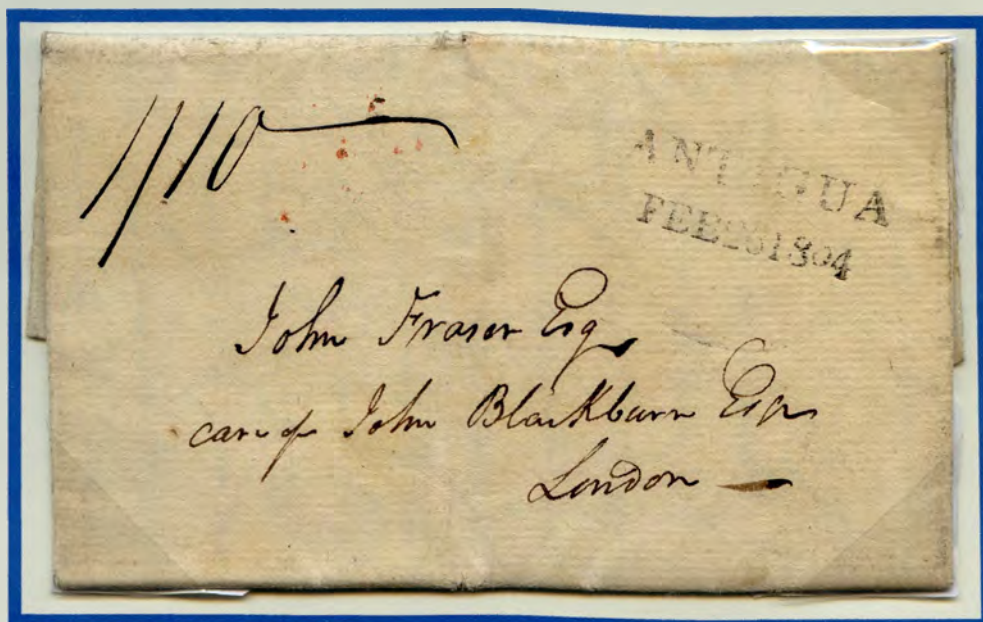 1/10
ANTIGUA
FEB 1804
John Fraser Esq
care of John Blackburn Esqr
London